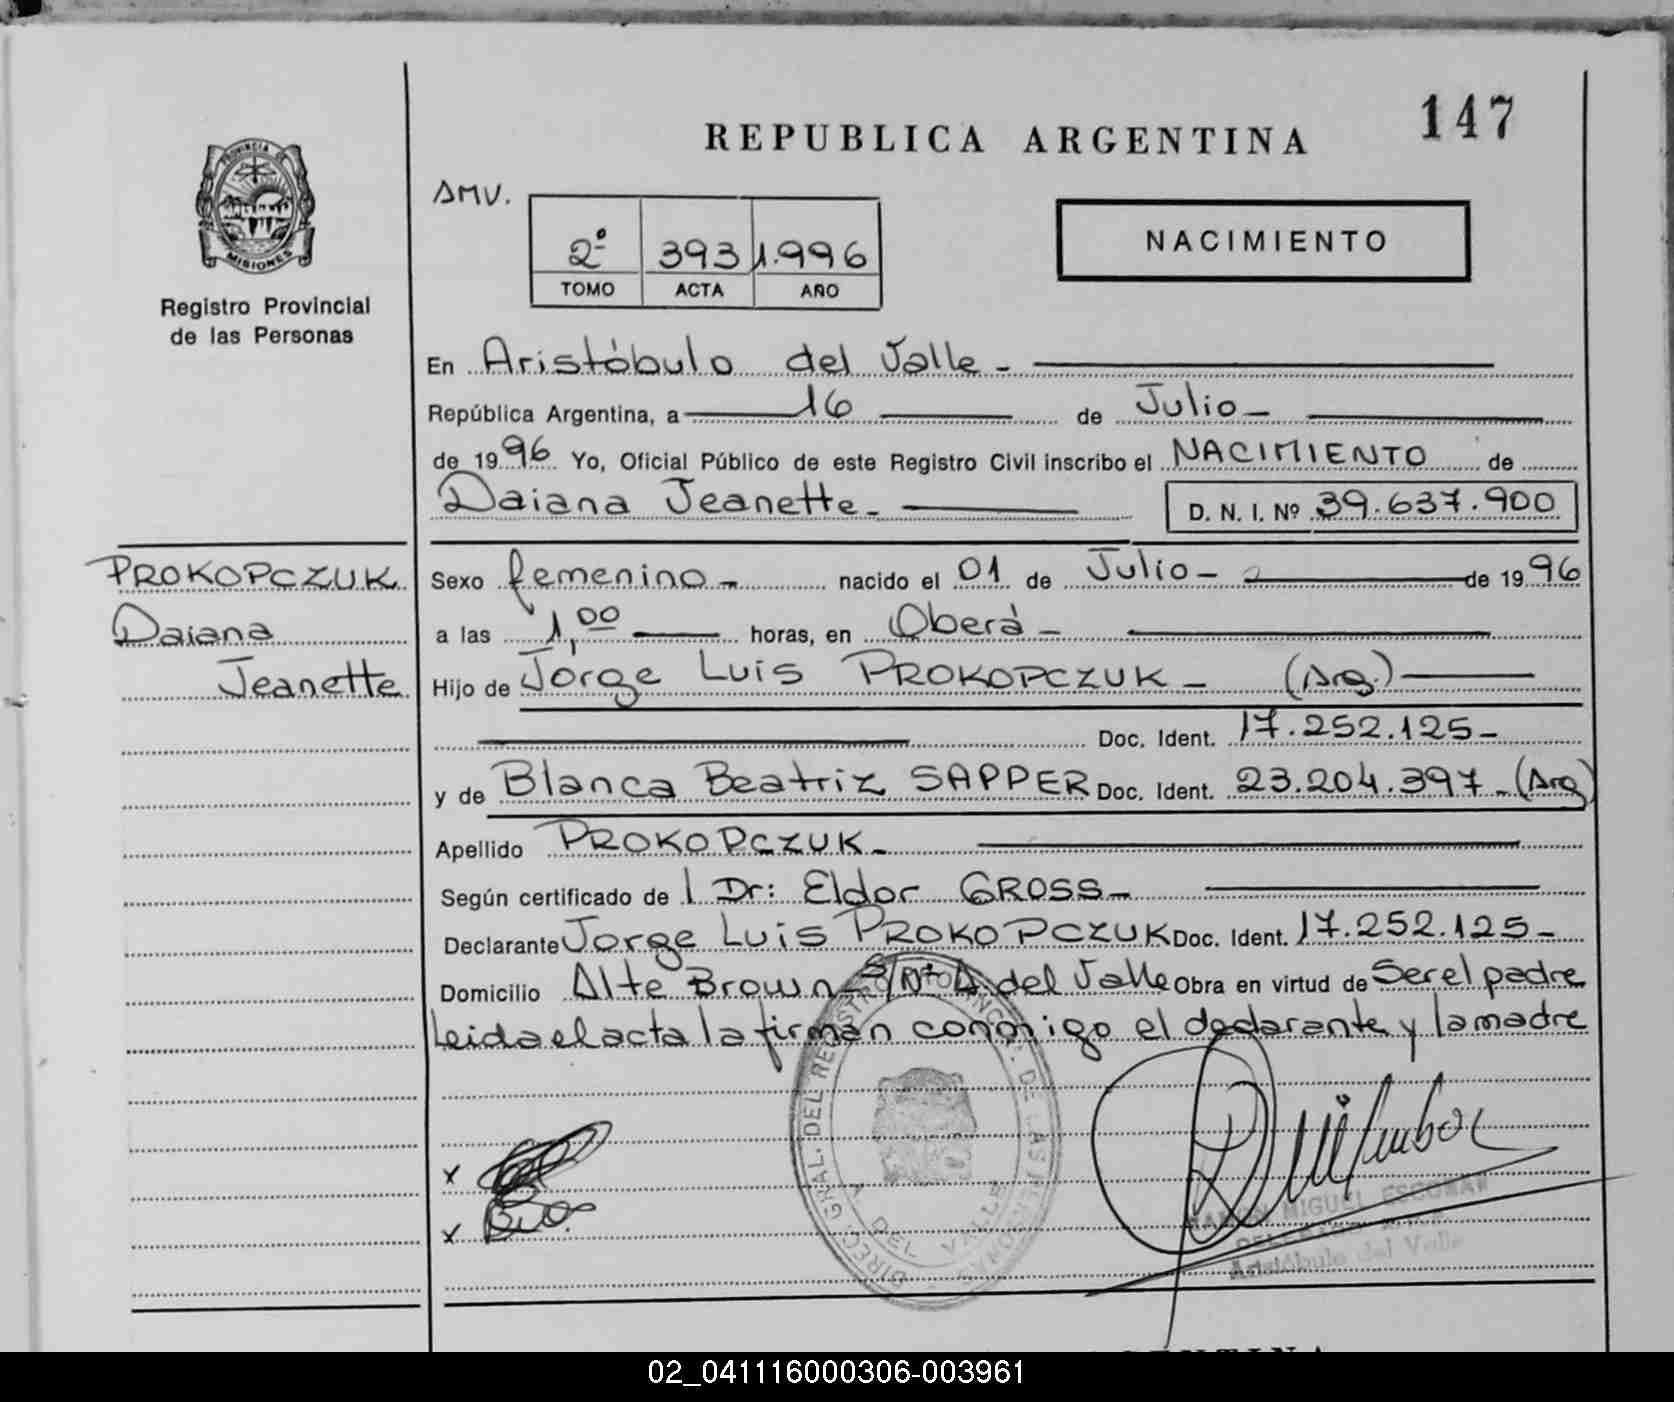 147
REPUBLICA ARGENTINA
PROVINCIA DE
MISIONES
Registro Provincial
de las Personas
AMV.
2º 393 1.996
TOMO ACTA AÑO
NACIMIENTO
En Aristóbulo del Valle -
República Argentina, a 16 de Julio -
de 1996 Yo, Oficial Público de este Registro Civil inscribo el NACIMIENTO de
Daiana Jeanette - D. N. I. Nº 39.637.900
PROKOPCZUK
Daiana
Jeanette
Sexo femenino - nacido el 01 de Julio - de 1996
a las 1,00 horas, en Oberá -
Hijo de Jorge Luis PROKOPCZUK - (Arg.)
Doc. Ident. 17.252.125 -
y de Blanca Beatriz SAPPER Doc. Ident. 23.204.397 - (Arg)
Apellido PROKOPCZUK -
Según certificado de l Dr: Eldor GROSS -
Declarante Jorge Luis PROKOPCZUK Doc. Ident. 17.252.125 -
Domicilio Alte Brown - S/Nº A. del Valle Obra en virtud de Ser el padre
Leida el acta la firman conmigo el declarante y la madre
DIREC. GRAL. DEL REGISTRO DE LAS PERSONAS
A. DEL VALLE
x
x
RAMON MIGUEL ESCOBAR
Aristóbulo del Valle
02_041116000306-003961